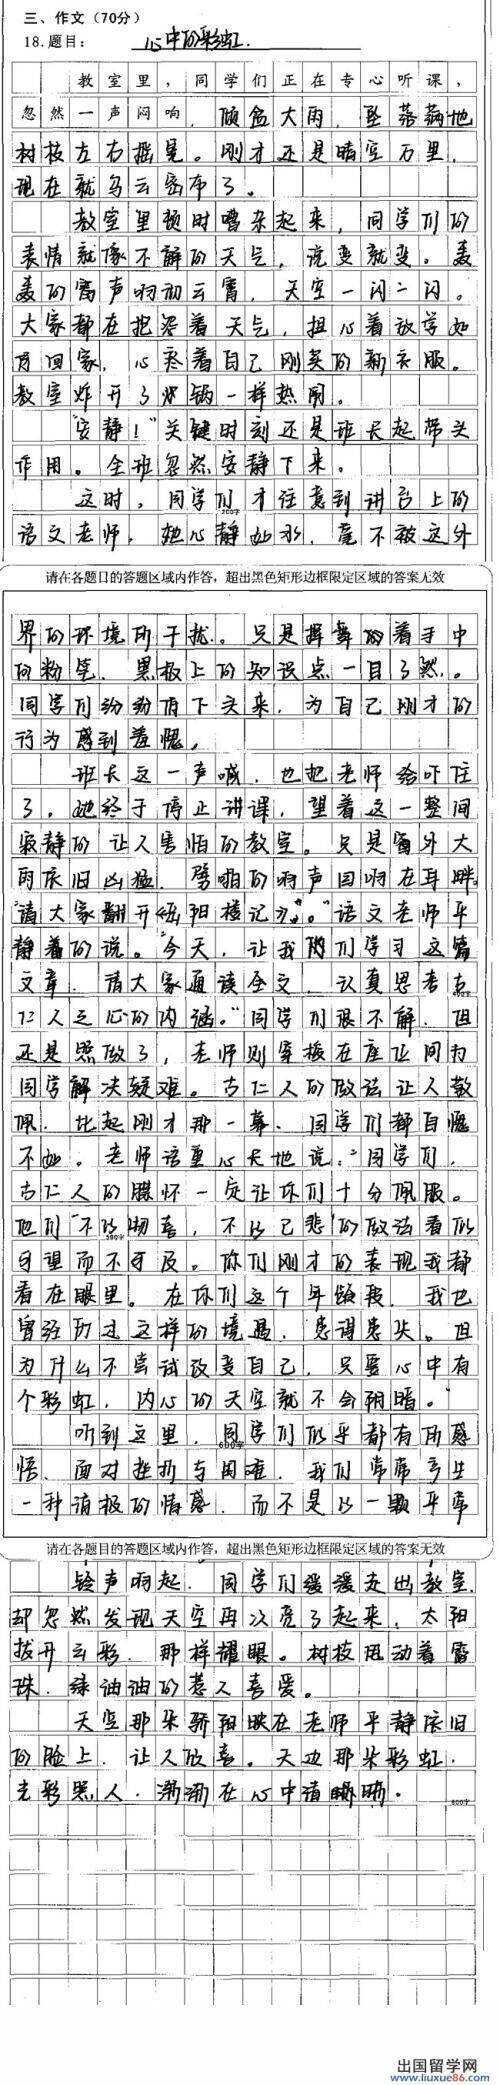 三、作文（70分）
18.题目： 心中的彩虹.
教室里，同学们正在专心听课，
忽然一声闷响，倾盆大雨，坠落满地
树枝左右摇晃。刚才还是晴空万里，
现在就乌云密布了。
教室里顿时嘈杂起来，同学们的
表情就像不解的天气，说变就变。轰
轰的雷声响彻云霄，天空一闪一闪。
大家都在抱怨着天气，担心着放学如
何回家，心疼着自己刚买的新衣服。
教室炸开了火锅一样热闹。
“安静！”关键时刻还是班长起带头
作用。全班忽然安静下来。
这时，同学们才注意到讲台上的
语文老师，她心静如水，毫不被这外
请在各题目的答题区域内作答，超出黑色矩形边框限定区域的答案无效
界的环境所干扰。只是挥舞的着手中
的粉笔，黑板上的知识点一目了然。
同学们纷纷有下头来，为自己刚才的
行为感到羞愧。
班长这一声喊，也把老师给吓住
了，她终于停止讲课，望着这一整间
寂静的让人害怕的教室。只是窗外大
雨依旧凶猛，劈啪的响声回响在耳畔。
“请大家翻开《岳阳楼记》。”语文老师平
静着的说。“今天，让我们学习这篇
文章，请大家通读全文，认真思考古
仁人之心的内涵。”同学们很不解，但
还是照做了，老师则穿梭在座位间为
同学解决疑难。古仁人的做法让人敬
佩，比起刚才那一幕，同学们都自愧
不如。老师语重心长地说：“同学们，
古仁人的胸怀一定让你们十分佩服。
他们‘不以物喜，不以己悲’的做法看似
可望而不可及。你们刚才的表现我都
看在眼里。在你们这个年龄段，我也
曾经历过这样的境遇，患得患失。但
为什么不尝试改变自己，只要心中有
个彩虹，内心的天空就不会阴暗。”
听到这里，同学们似乎都有所感
悟，面对挫折与困难，我们常常产生
一种消极的情感，而不是以一颗平常
请在各题目的答题区域内作答，超出黑色矩形边框限定区域的答案无效
铃声响起，同学们缓缓走出教室，
却忽然发现天空再次亮了起来，太阳
拨开云彩，那样耀眼。树枝甩动着露
珠，绿油油的惹人喜爱。
天空那朵骄阳映在老师平静依旧
的脸上，让人欣喜。天边那朵彩虹，
光彩照人，渐渐在心中清晰。
出国留学网
www.liuxue86.com